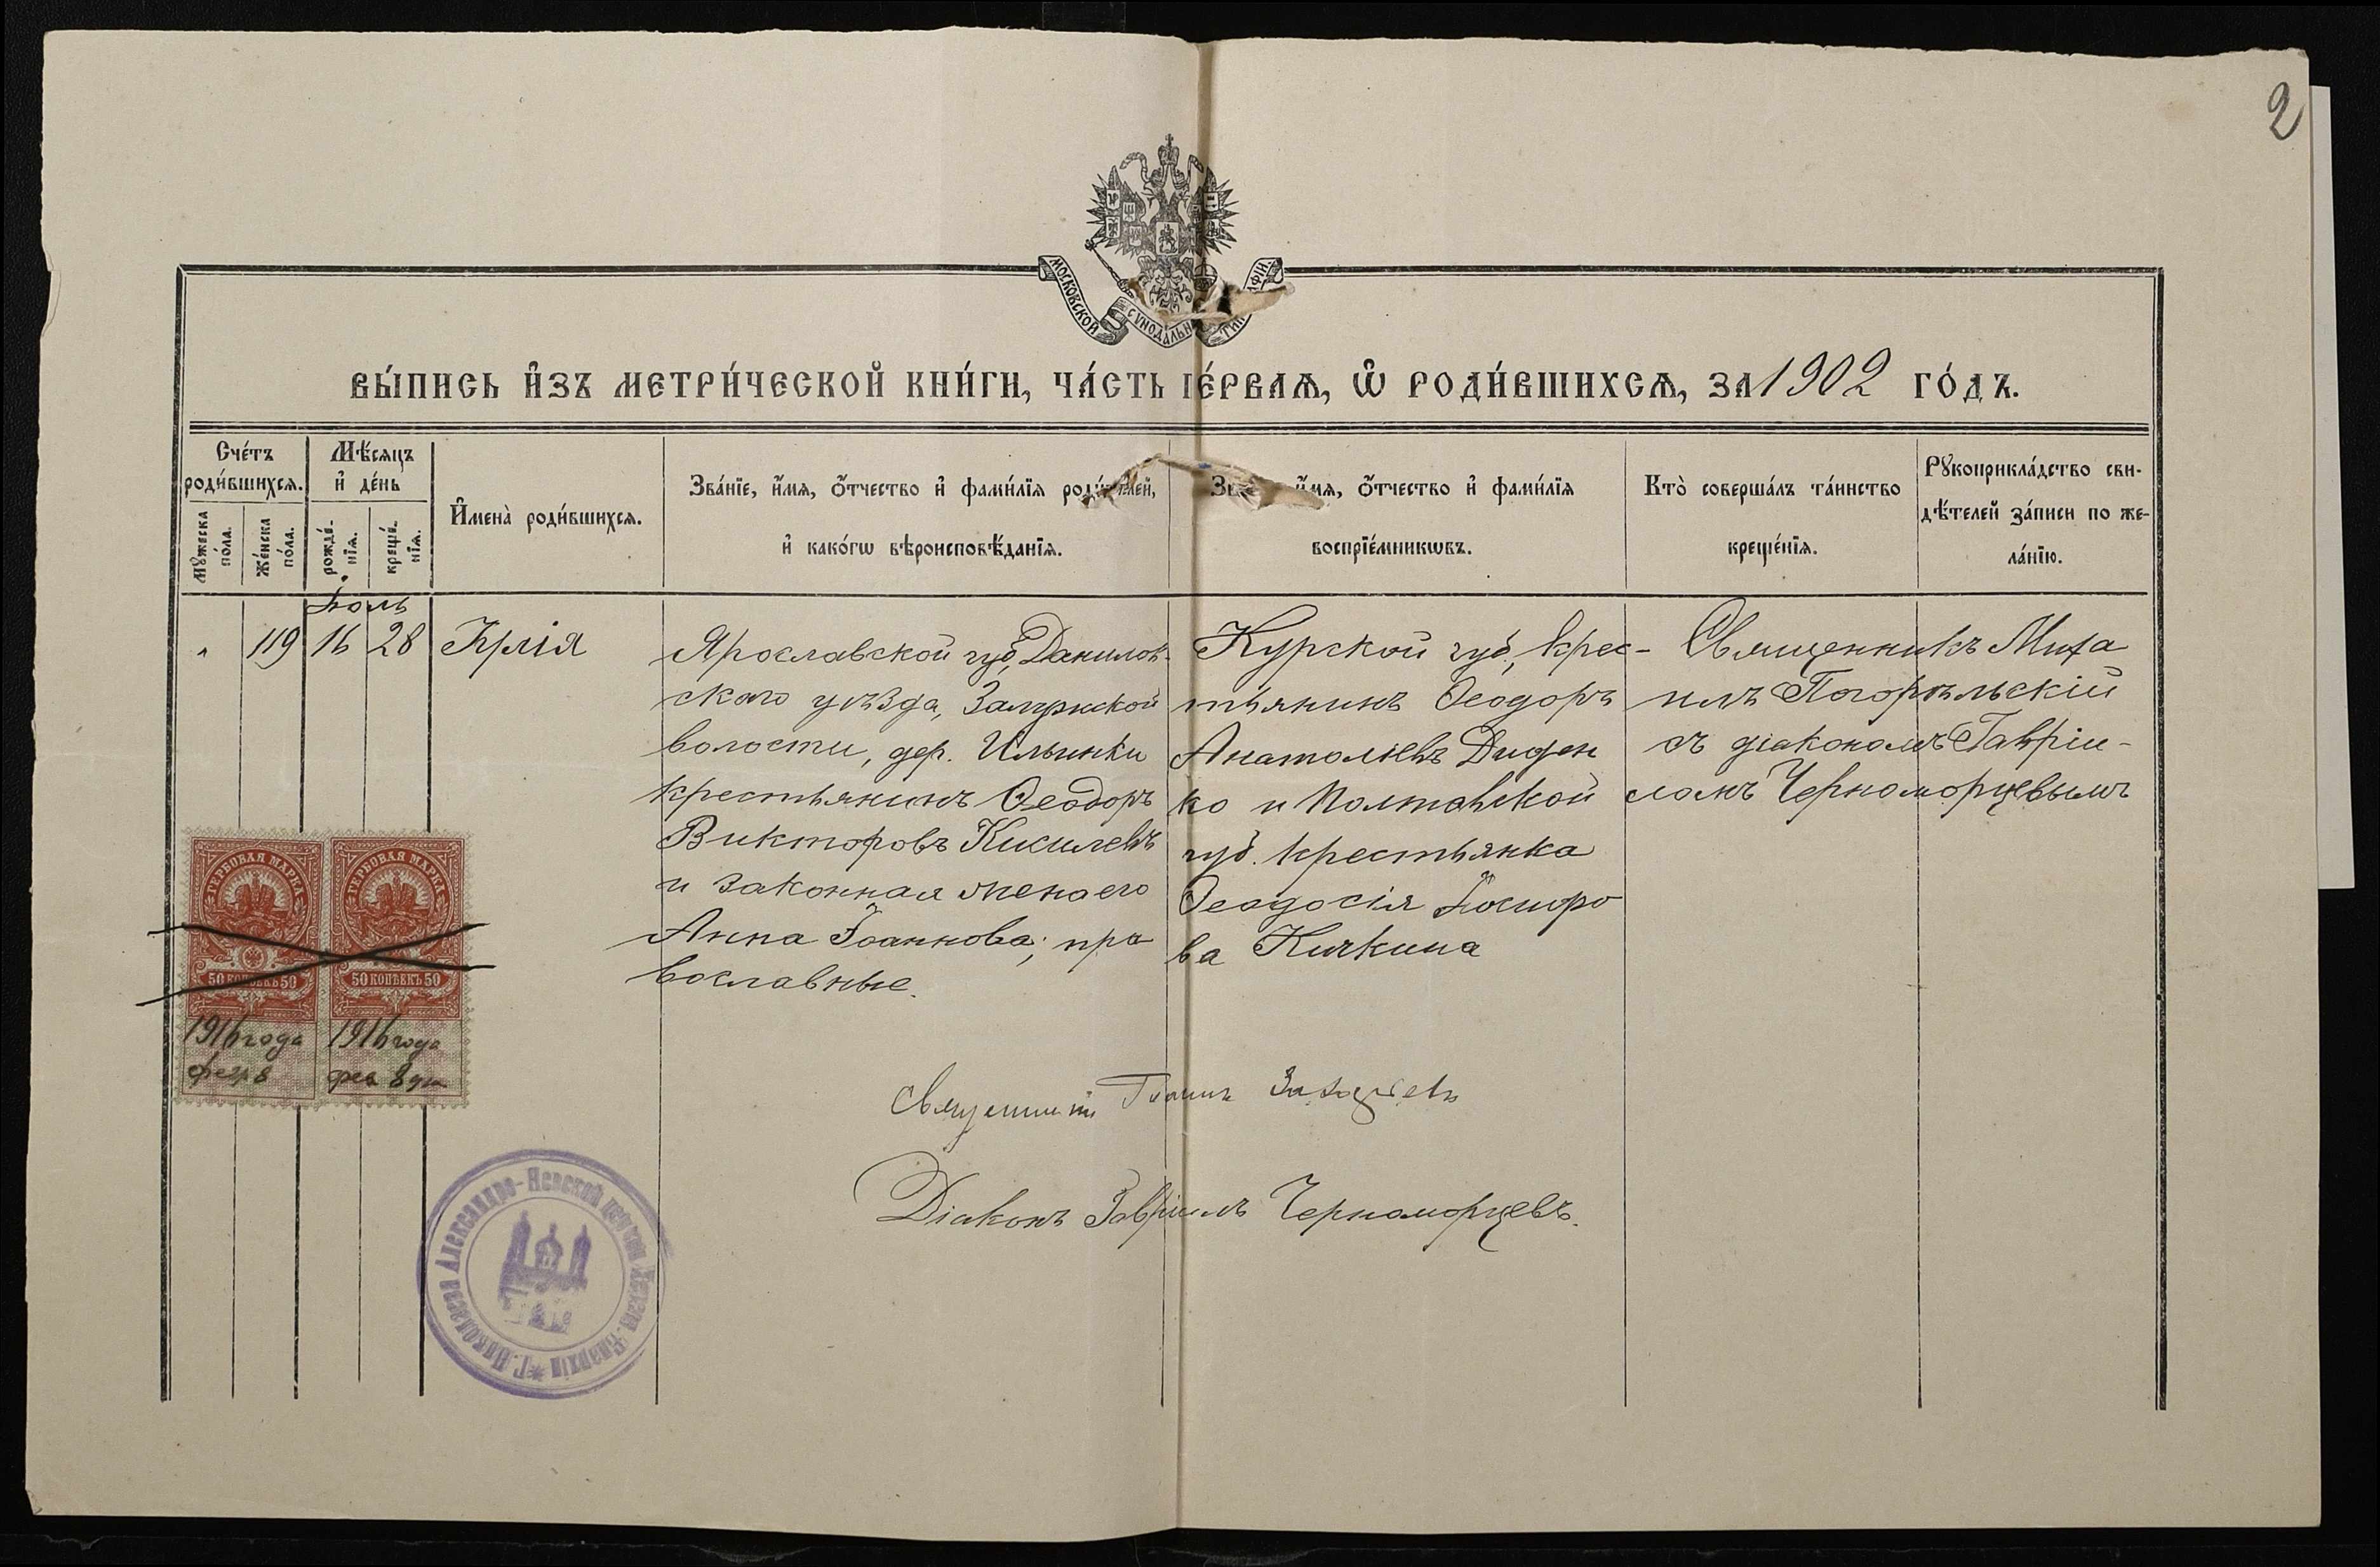 2
МОСКОВСКОЙ СѴНОДАЛЬН ТИП
ВЫ́ПИСЬ И҆́ЗЪ МЕТРИ́ЧЕСКОЙ КНИ́ГИ, ЧА́СТЬ ПЕ́РВАѦ, Ѡ҆ РОДИ́ВШИХСѦ, ЗА 1902 ГО́ДЪ.
Сче́тъ роди́вшихсѧ.
Мꙋ́жеска по́ла.
Же́нска по́ла.
Мѣ́сѧцъ и҆ де́нь
рожде́-нїѧ.
креще́-нїѧ.
И҆мена̀ роди́вшихсѧ.
Зва́нїе, и҆́мѧ, ѻ҆́тчество и҆ фами́лїѧ роди́телей,
и҆ како́гѡ вѣроисповѣ́данїѧ.
и҆́мѧ, ѻ҆́тчество и҆ фами́лїѧ
воспрїе́мникѡвъ.
Кто̀ соверша́лъ та́инство
креще́нїѧ.
Рꙋкоприкла́дство сви-
дѣ́телей за́писи по же-
ла́нїю.
Іюль
" 119 16 28
Юлія
Ярославской губ, Данилов-
скаго уѣзда,
волости, дер. Ильинки
крестьянинъ Ѳеодоръ
Викторовъ Киселевъ
и законная жена его
Анна Іоаннова; пра
вославные.
Курской губ., крес-
тьянинъ Ѳеодоръ
Анатоліевъ Диден
ко и Полтавской
губ. крестьянка
Ѳеодосія
ва Кичкина
Священникъ Миха
илъ Погорѣльскій
съ діакономъ Гавріи-
ломъ Черноморцевымъ
ГЕРБОВАЯ МАРКА
50 КОПѢЕКЪ 50
1916 года
февр 8
ГЕРБОВАЯ МАРКА
50 КОПѢЕКЪ 50
1916 года
фев 8 дня
Священникъ
Діаконъ Гавріилъ Черноморцевъ.
Г. Николаева Александро-Невской церкви Херсон. Епархіи